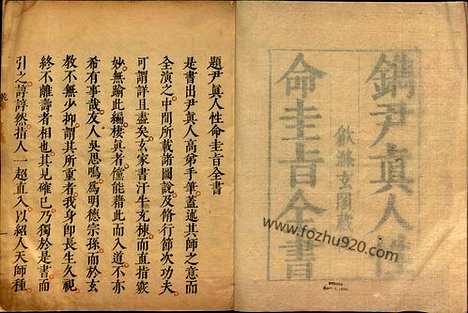 鐫尹真人性
命圭旨全書
歙滌玄閣藏
www.fozhu920.com
題尹真人性命圭旨全書
是書出尹真人高弟手筆蓋述其師之意而
全演之中間所載諸圖說及脩行節次功夫
可謂詳且盡矣玄家書汗牛充棟而直指竅
妙無踰此編棲真者僅能藉此而入道不亦
希有事哉友人吳思鳴爲明德宗孫而於玄
教不無少抑謂其所重者我身即長生久視
終不離壽者相也其見確已乃獨於是書而
引之諄諄然指人一超直入以紹人天師種